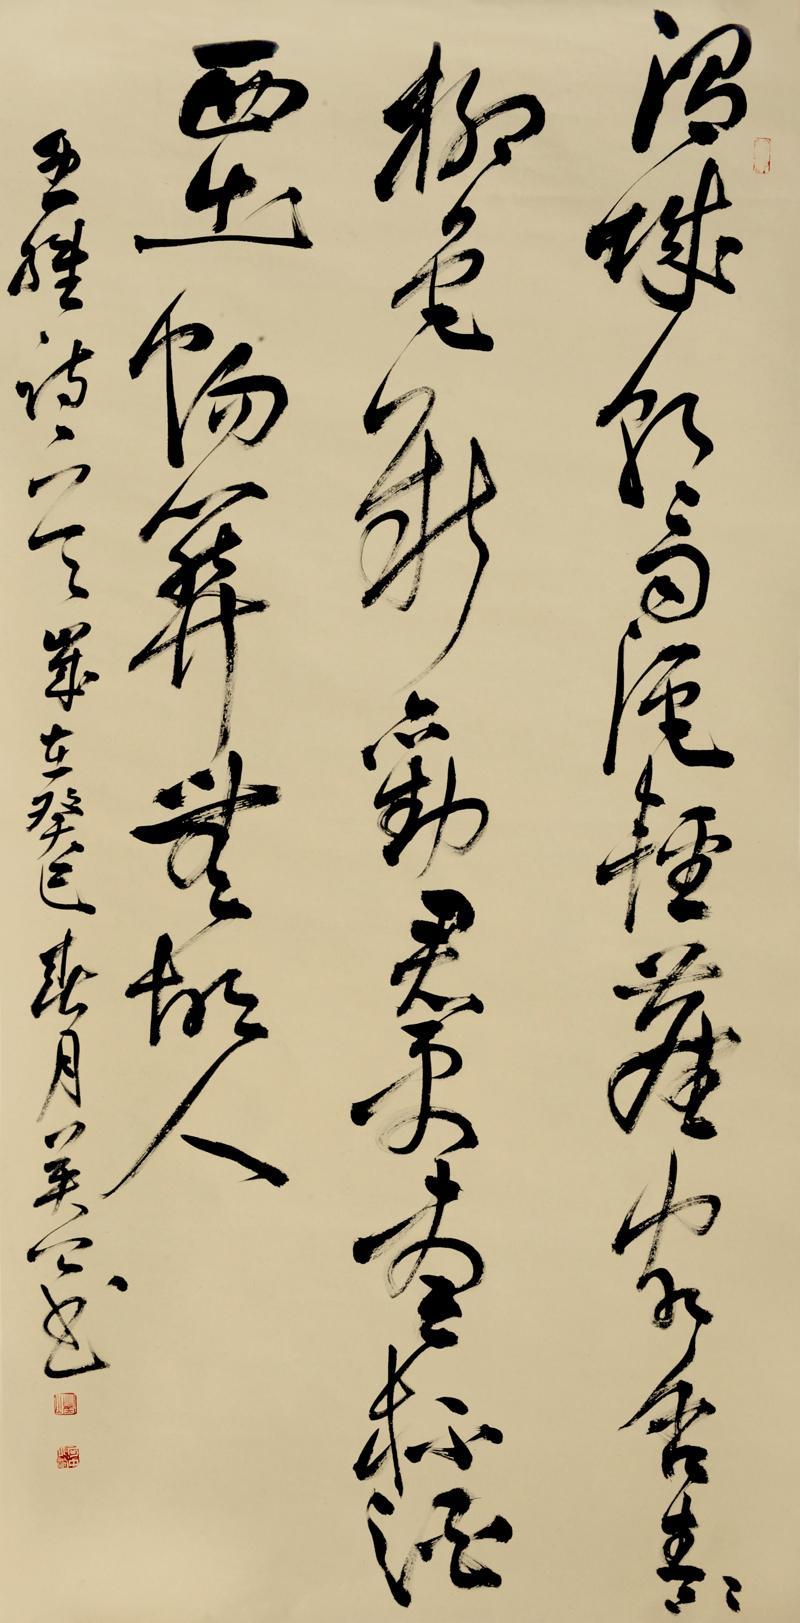 渭城朝雨浥輕塵客舍青々
柳色新勸君更盡一杯酒
西出陽關無故人
王維詩歲在癸巳春月英公书